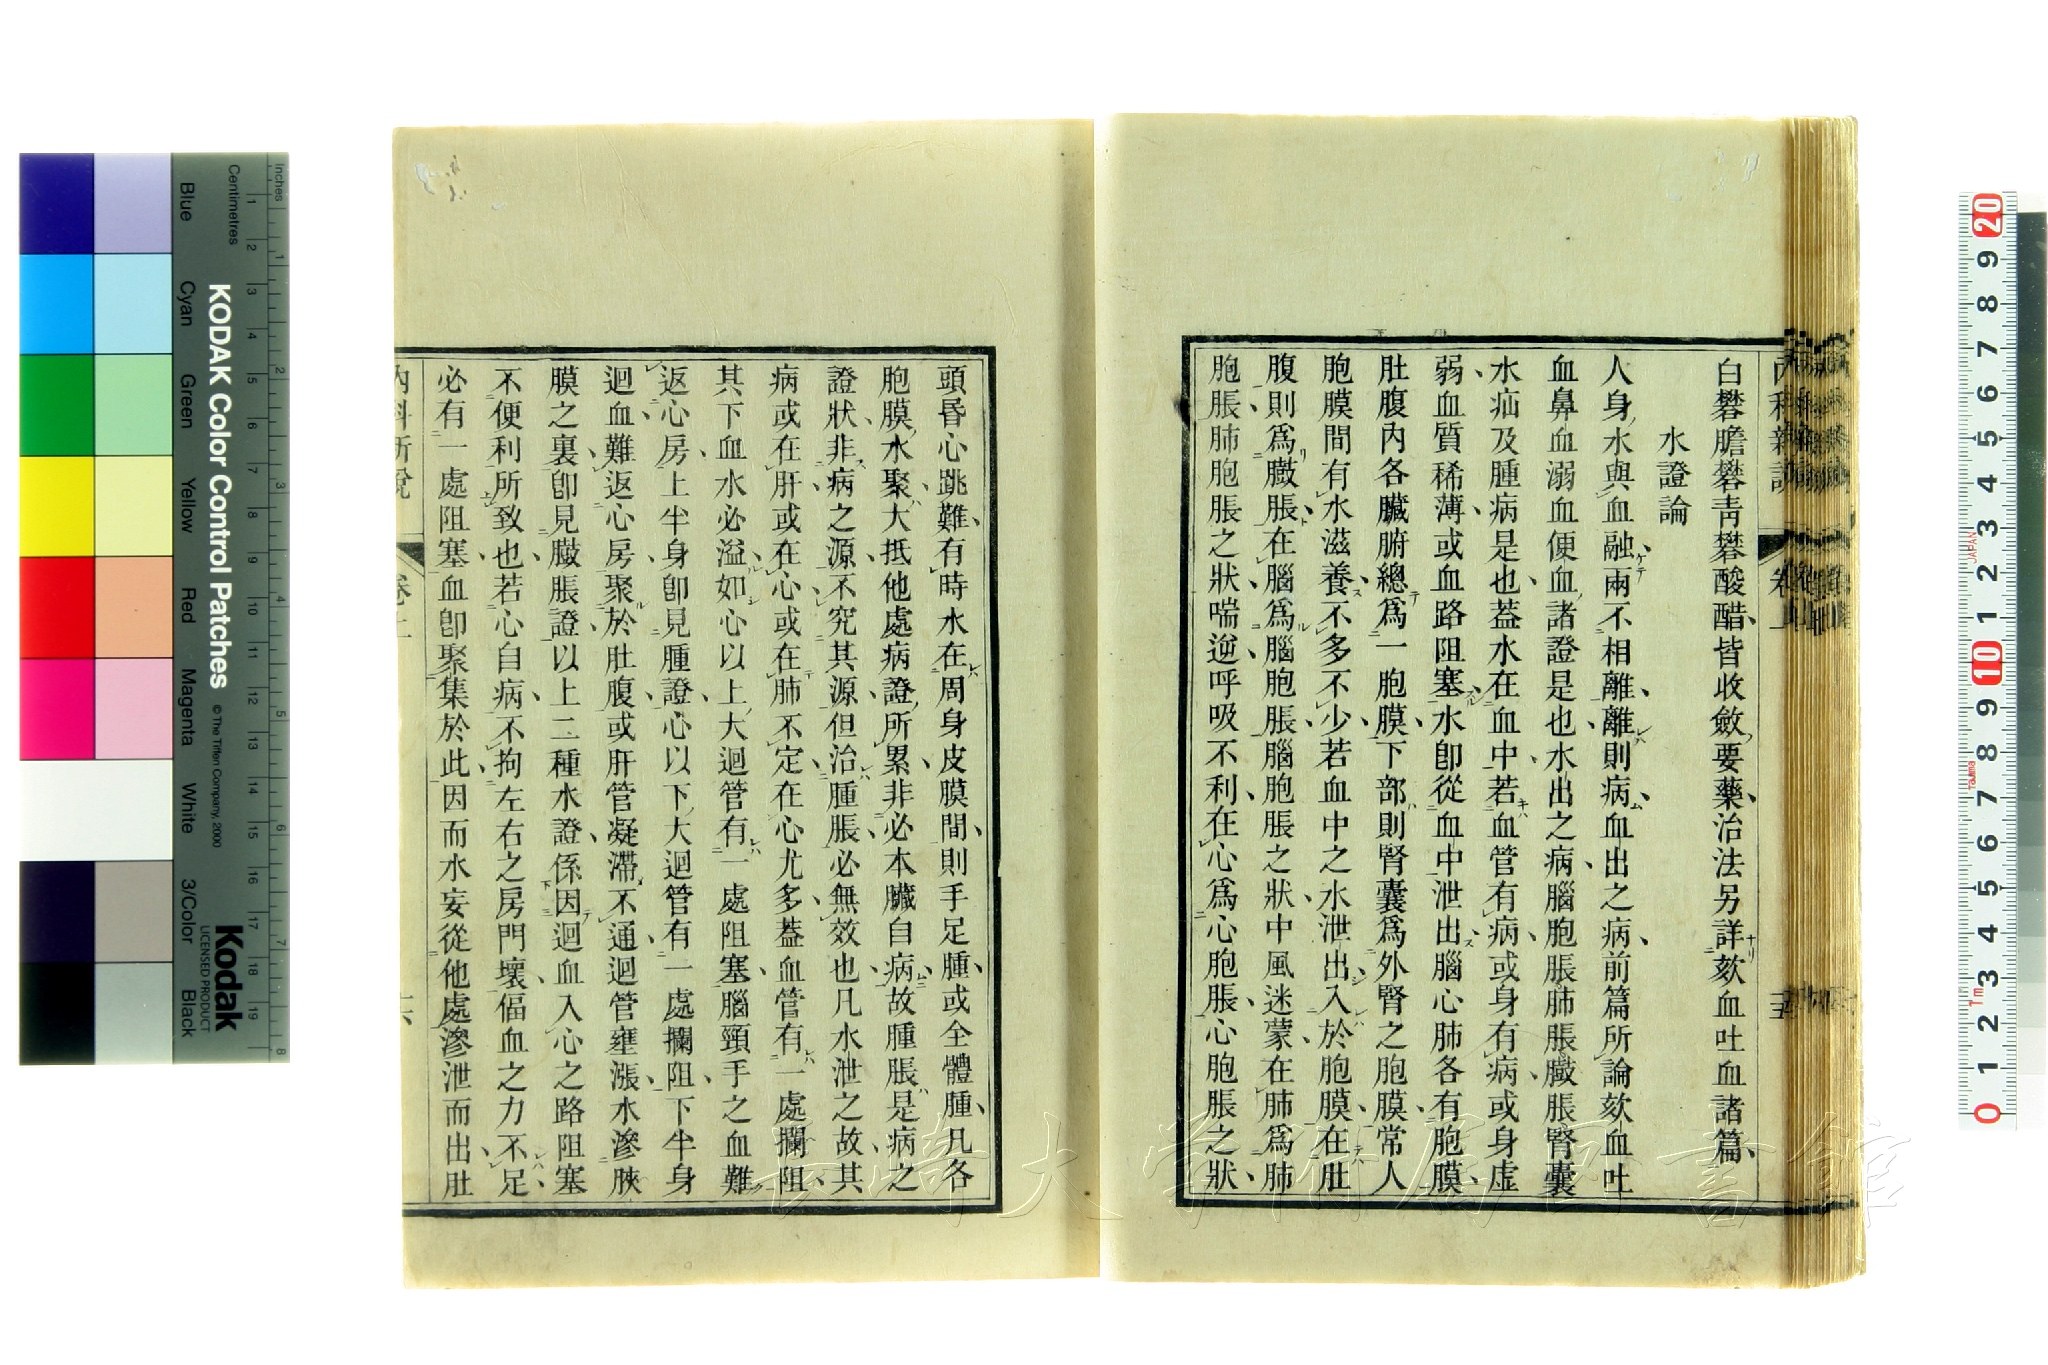 白礬膽礬青礬酸醋皆收斂要藥治法另詳欬血吐血諸篇
水證論
人身水與血融兩不相離離則病血出之病前篇所論欬血吐
血鼻血溺血便血諸證是也水出之病腦胞脹肺脹臌脹腎囊
水疝及腫病是也葢水在血中若血管有病或身有病或身虚
弱血質稀薄或血路阻塞水卽從血中泄出腦心肺各有胞膜
肚腹內各臟腑總爲一胞膜下部則腎囊爲外腎之胞膜常人
胞膜間有水滋養不多不少若血中之水泄出入於胞膜在肚
腹則爲臌脹在腦爲腦胞脹腦胞脹之狀中風迷蒙在肺爲肺
胞脹肺胞脹之狀喘逆呼吸不利在心爲心胞脹心胞脹之狀
頭昏心跳難有時水在周身皮膜間則手足腫或全體腫凡各
胞膜水聚大抵他處病證所累非必本臟自病故腫脹是病之
證狀非病之源不究其源但治腫脹必無效也凡水泄之故其
病或在肝或在心或在肺不定在心尤多葢血管有一處攔阻
其下血水必溢如心以上大迴管有一處阻塞腦頸手之血難
返心房上半身卽見腫證心以下大迴管有一處攔阻下半身
迴血難返心房聚於肚腹或肝管凝滯不通迴管壅漲水滲脥
膜之裏卽見臌脹證以上二種水證係因迴血入心之路阻塞
不便利所致也若心自病不拘左右之房門壞偪血之力不足
必有一處阻塞血卽聚集於此因而水妄從他處滲泄而出肚
內科新說
卷上
KODAK Color Control Patches
© The Tiffen Company, 2000
Kodak
LICENSED PRODUCT
Inches
Centimetres
Blue
Cyan
Green
Yellow
Red
Magenta
White
3/Color
Black
長崎大学附属図書館